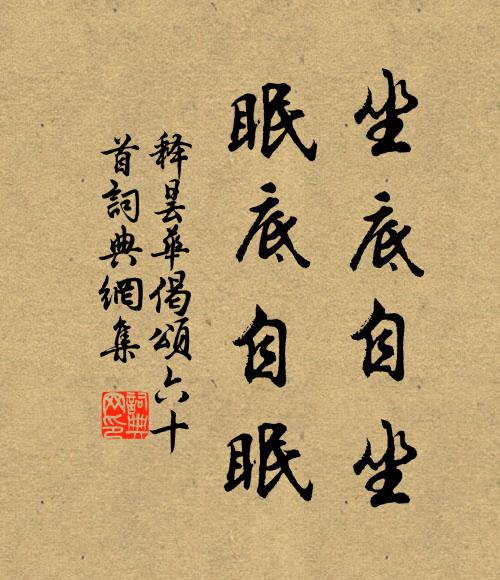 坐底自坐
眠底自眠
释昙华偈颂六十
首词典網集
詞典網印